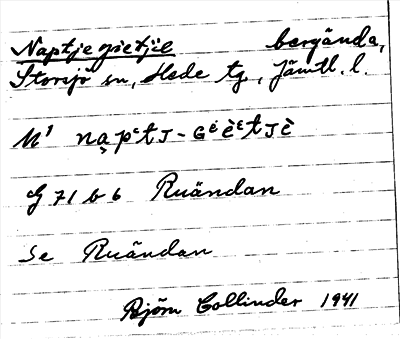 Naptjegietjie bergända,
Storsjö sn, Hede tg, Jämtl. l.
M' nḁpᵋtJ-Gėèᵋtjè
G 71 b 6 Ruändan
Se Ruändan
Björn Collinder 1941